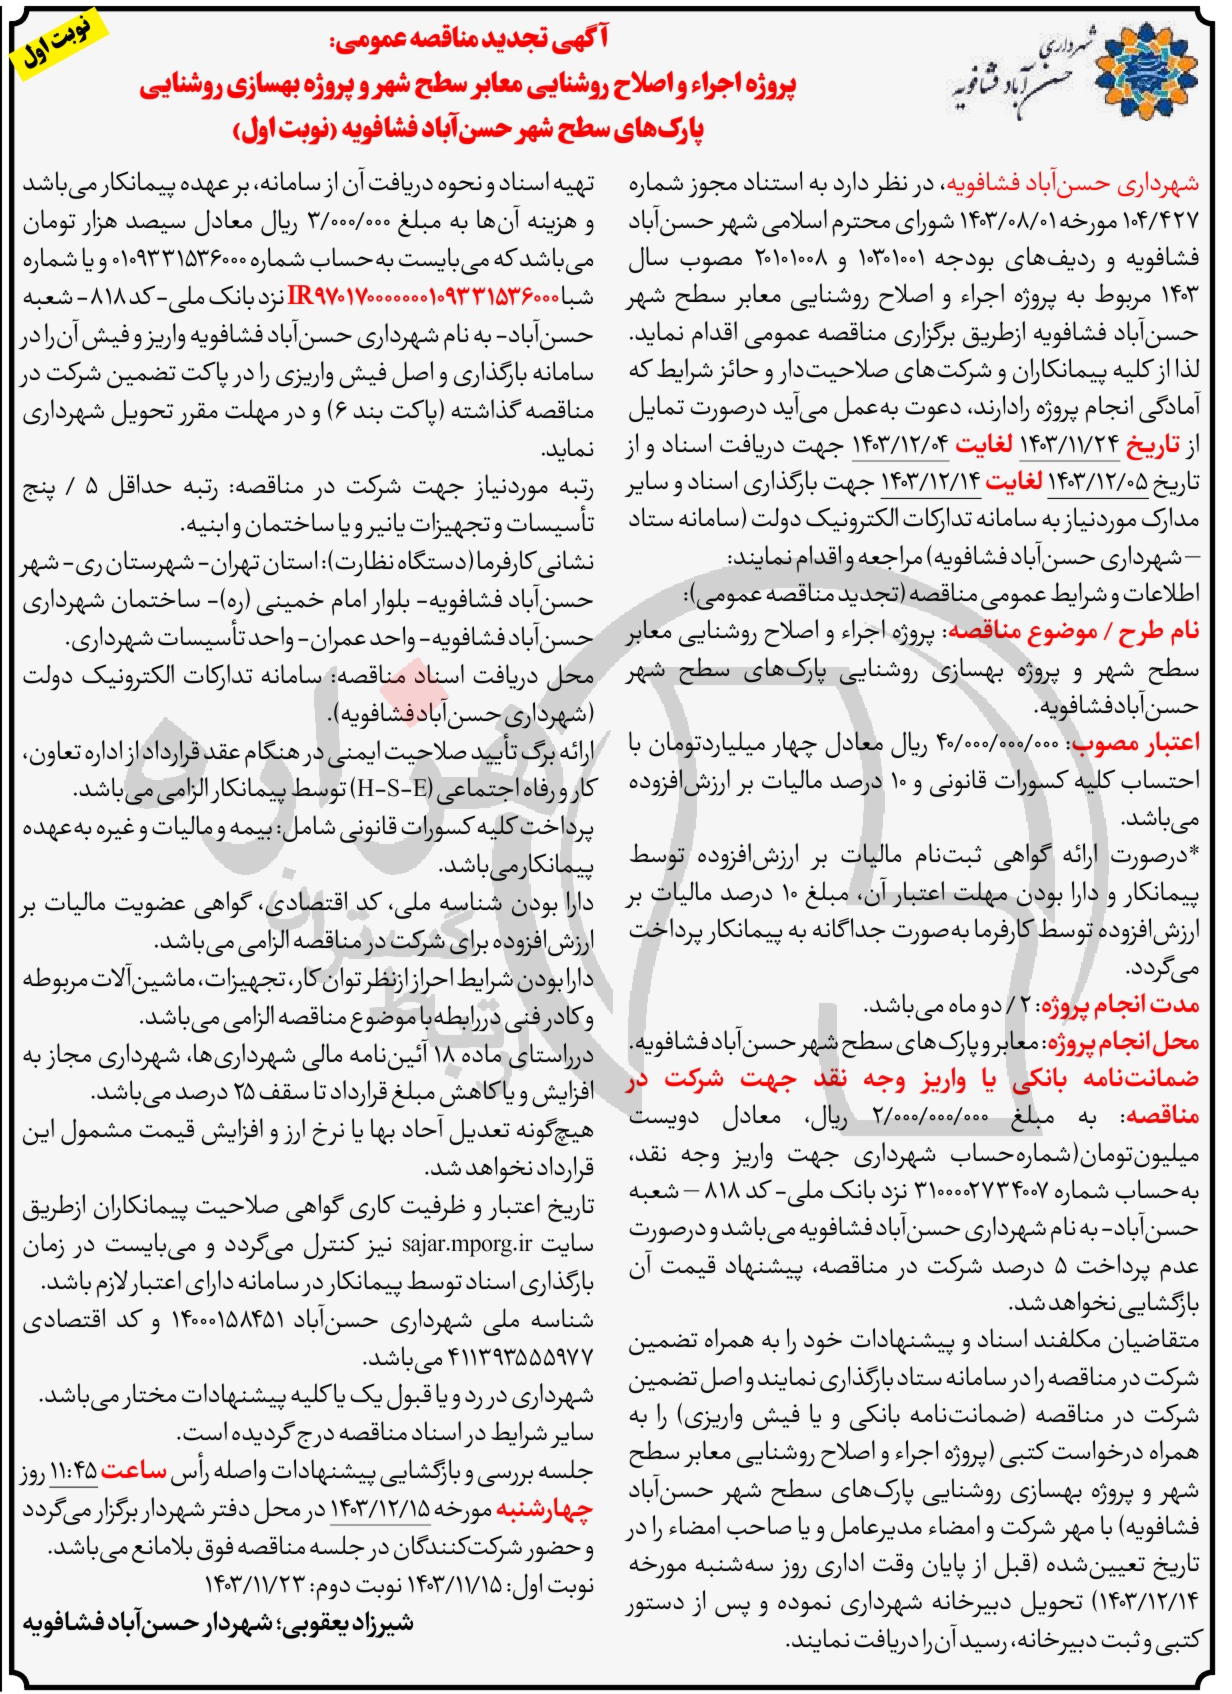 نوبت اول
شهرداری
حسن آباد فشافویه
آگهی تجدید مناقصه عمومی:
پروژه اجراء و اصلاح روشنایی معابر سطح شهر و پروژه بهسازی روشنایی
پارک‌های سطح شهر حسن‌آباد فشافویه (نوبت اول)
شهرداری حسن‌آباد فشافویه، در نظر دارد به استناد مجوز شماره
۱۰۴/۴۲۷ مورخه ۱۴۰۳/۰۸/۰۱ شورای محترم اسلامی شهر حسن‌آباد
فشافویه و ردیف‌های بودجه ۱۰۳۰۱۰۰۱ و ۲۰۱۰۱۰۰۸ مصوب سال
۱۴۰۳ مربوط به پروژه اجراء و اصلاح روشنایی معابر سطح شهر
حسن‌آباد فشافویه ازطریق برگزاری مناقصه عمومی اقدام نماید.
لذا از کلیه پیمانکاران و شرکت‌های صلاحیت‌دار و حائز شرایط که
آمادگی انجام پروژه رادارند، دعوت به‌عمل می‌آید درصورت تمایل
از تاریخ ۱۴۰۳/۱۱/۲۴ لغایت ۱۴۰۳/۱۲/۰۴ جهت دریافت اسناد و از
تاریخ ۱۴۰۳/۱۲/۰۵ لغایت ۱۴۰۳/۱۲/۱۴ جهت بارگذاری اسناد و سایر
مدارک موردنیاز به سامانه تدارکات الکترونیک دولت (سامانه ستاد
–شهرداری حسن‌آباد فشافویه) مراجعه و اقدام نمایند:
اطلاعات و شرایط عمومی مناقصه (تجدید مناقصه عمومی):
نام طرح / موضوع مناقصه: پروژه اجراء و اصلاح روشنایی معابر
سطح شهر و پروژه بهسازی روشنایی پارک‌های سطح شهر
حسن‌آبادفشافویه.
اعتبار مصوب: ۴۰/۰۰۰/۰۰۰/۰۰۰ ریال معادل چهار میلیاردتومان با
احتساب کلیه کسورات قانونی و ۱۰ درصد مالیات بر ارزش‌افزوده
می‌باشد.
*درصورت ارائه گواهی ثبت‌نام مالیات بر ارزش‌افزوده توسط
پیمانکار و دارا بودن مهلت اعتبار آن، مبلغ ۱۰ درصد مالیات بر
ارزش‌افزوده توسط کارفرما به‌صورت جداگانه به پیمانکار پرداخت
می‌گردد.
مدت انجام پروژه: ۲ / دو ماه می‌باشد.
محل انجام پروژه: معابر و پارک های سطح شهر حسن‌آباد فشافویه.
ضمانت‌نامه بانکی یا واریز وجه نقد جهت شرکت در
مناقصه: به مبلغ ۲/۰۰۰/۰۰۰/۰۰۰ ریال، معادل دویست
میلیون‌تومان(شماره‌حساب شهرداری جهت واریز وجه نقد،
به‌حساب شماره ۳۱۰۰۰۰۲۷۳۴۰۰۷ نزد بانک ملی- کد ۸۱۸ – شعبه
حسن‌آباد- به نام شهرداری حسن‌آباد فشافویه می‌باشد و درصورت
عدم پرداخت ۵ درصد شرکت در مناقصه، پیشنهاد قیمت آن
بازگشایی نخواهد شد.
متقاضیان مکلفند اسناد و پیشنهادات خود را به همراه تضمین
شرکت در مناقصه را در سامانه ستاد بارگذاری نمایند و اصل تضمین
شرکت در مناقصه (ضمانت‌نامه بانکی و یا فیش واریزی) را به
همراه درخواست کتبی (پروژه اجراء و اصلاح روشنایی معابر سطح
شهر و پروژه بهسازی روشنایی پارک‌های سطح شهر حسن‌آباد
فشافویه) با مهر شرکت و امضاء مدیرعامل و یا صاحب امضاء را در
تاریخ تعیین‌شده (قبل از پایان وقت اداری روز سه‌شنبه مورخه
۱۴۰۳/۱۲/۱۴) تحویل دبیرخانه شهرداری نموده و پس از دستور
کتبی و ثبت دبیرخانه، رسید آن را دریافت نمایند.
تهیه اسناد و نحوه دریافت آن از سامانه، بر عهده پیمانکار می‌باشد
و هزینه آن‌ها به مبلغ ۳/۰۰۰/۰۰۰ ریال معادل سیصد هزار تومان
می‌باشد که می‌بایست به‌حساب شماره ۰۱۰۹۳۳۱۵۳۶۰۰۰ و یا شماره
شبا IR۹۷۰۱۷۰۰۰۰۰۰۰۱۰۹۳۳۱۵۳۶۰۰۰ نزد بانک ملی- کد ۸۱۸- شعبه
حسن‌آباد- به نام شهرداری حسن‌آباد فشافویه واریز و فیش آن را در
سامانه بارگذاری و اصل فیش واریزی را در پاکت تضمین شرکت در
مناقصه گذاشته (پاکت بند ۶) و در مهلت مقرر تحویل شهرداری
نماید.
رتبه موردنیاز جهت شرکت در مناقصه: رتبه حداقل ۵ / پنج
تأسیسات و تجهیزات یانیر و یا ساختمان و ابنیه.
نشانی کارفرما (دستگاه نظارت): استان تهران- شهرستان ری- شهر
حسن‌آباد فشافویه- بلوار امام خمینی (ره)- ساختمان شهرداری
حسن‌آباد فشافویه- واحد عمران- واحد تأسیسات شهرداری.
محل دریافت اسناد مناقصه: سامانه تدارکات الکترونیک دولت
(شهرداری حسن‌آبادفشافویه).
ارائه برگ تأیید صلاحیت ایمنی در هنگام عقد قرارداد از اداره تعاون،
کار و رفاه اجتماعی (H-S-E) توسط پیمانکار الزامی می‌باشد.
پرداخت کلیه کسورات قانونی شامل: بیمه و مالیات و غیره به‌عهده
پیمانکارمی‌باشد.
دارا بودن شناسه ملی، کد اقتصادی، گواهی عضویت مالیات بر
ارزش‌افزوده برای شرکت در مناقصه الزامی می‌باشد.
دارابودن شرایط احراز ازنظر توان کار، تجهیزات، ماشین‌آلات مربوطه
و کادر فنی دررابطه با موضوع مناقصه الزامی می‌باشد.
درراستای ماده ۱۸ آئین‌نامه مالی شهرداری‌ها، شهرداری مجاز به
افزایش و یا کاهش مبلغ قرارداد تا سقف ۲۵ درصد می‌باشد.
هیچ‌گونه تعدیل آحاد بها یا نرخ ارز و افزایش قیمت مشمول این
قرارداد نخواهد شد.
تاریخ اعتبار و ظرفیت کاری گواهی صلاحیت پیمانکاران ازطریق
سایت sajar.mporg.ir نیز کنترل می‌گردد و می‌بایست در زمان
بارگذاری اسناد توسط پیمانکار در سامانه دارای اعتبار لازم باشد.
شناسه ملی شهرداری حسن‌آباد ۱۴۰۰۰۱۵۸۴۵۱ و کد اقتصادی
۴۱۱۳۹۳۵۵۵۹۷۷ می‌باشد.
شهرداری در رد و یا قبول یک یا کلیه پیشنهادات مختار می‌باشد.
سایر شرایط در اسناد مناقصه درج گردیده است.
جلسه بررسی و بازگشایی پیشنهادات واصله رأس ساعت ۱۱:۴۵ روز
چهارشنبه مورخه ۱۴۰۳/۱۲/۱۵ در محل دفتر شهردار برگزار می‌گردد
و حضور شرکت‌کنندگان در جلسه مناقصه فوق بلامانع می‌باشد.
نوبت اول: ۱۴۰۳/۱۱/۱۵ نوبت دوم: ۱۴۰۳/۱۱/۲۳
شیرزاد یعقوبی؛ شهردار حسن‌آباد فشافویه